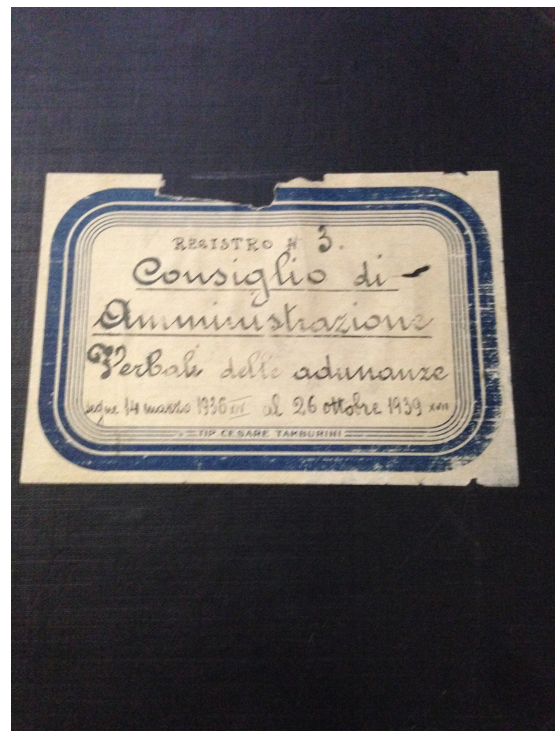 REGISTRO N 3.
Consiglio di -
Amministrazione
Verbale delle adunanze
segue 14 marzo 1936 XIV al 26 ottobre 1939 XVII
TIP. CESARE TAMBURINI